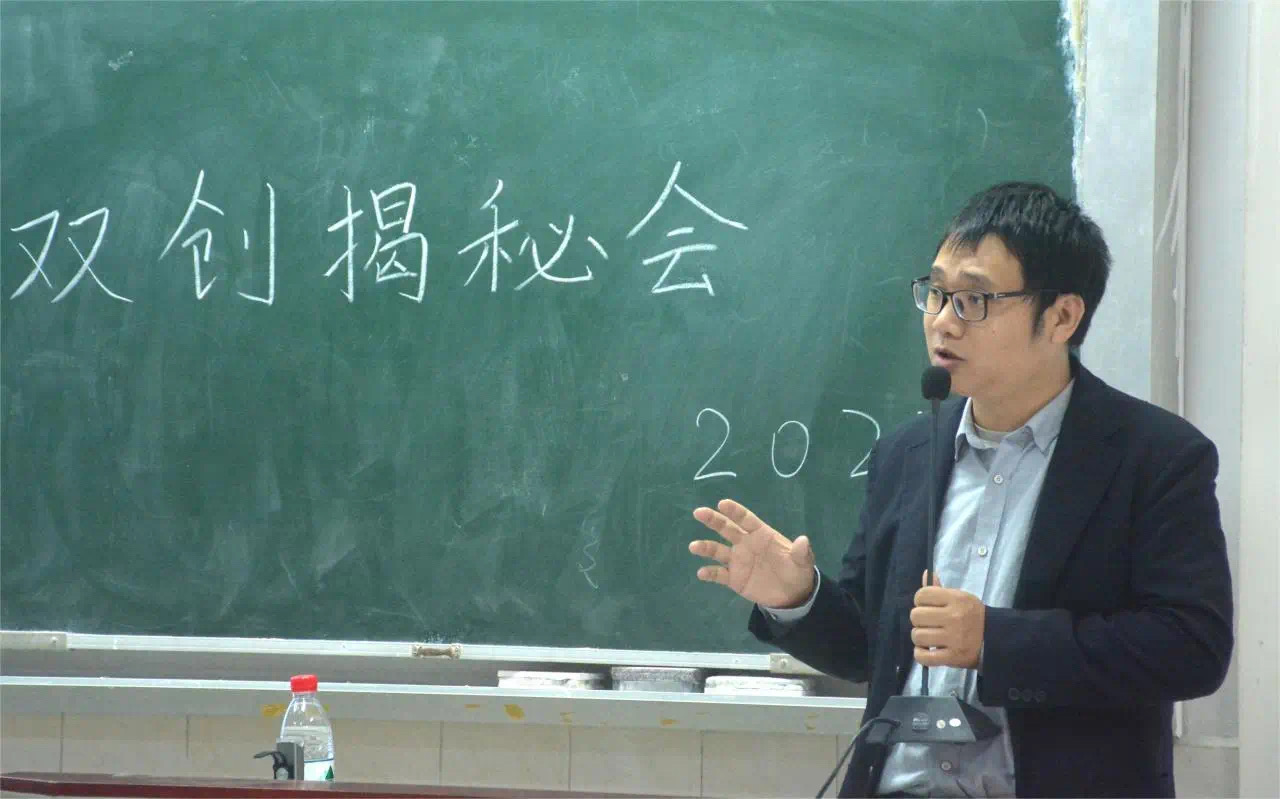 双创揭秘会
202